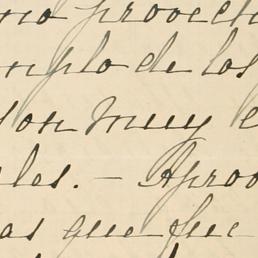 mo provecto
mplo de los
son muy e
les. - Aprov
as que fue